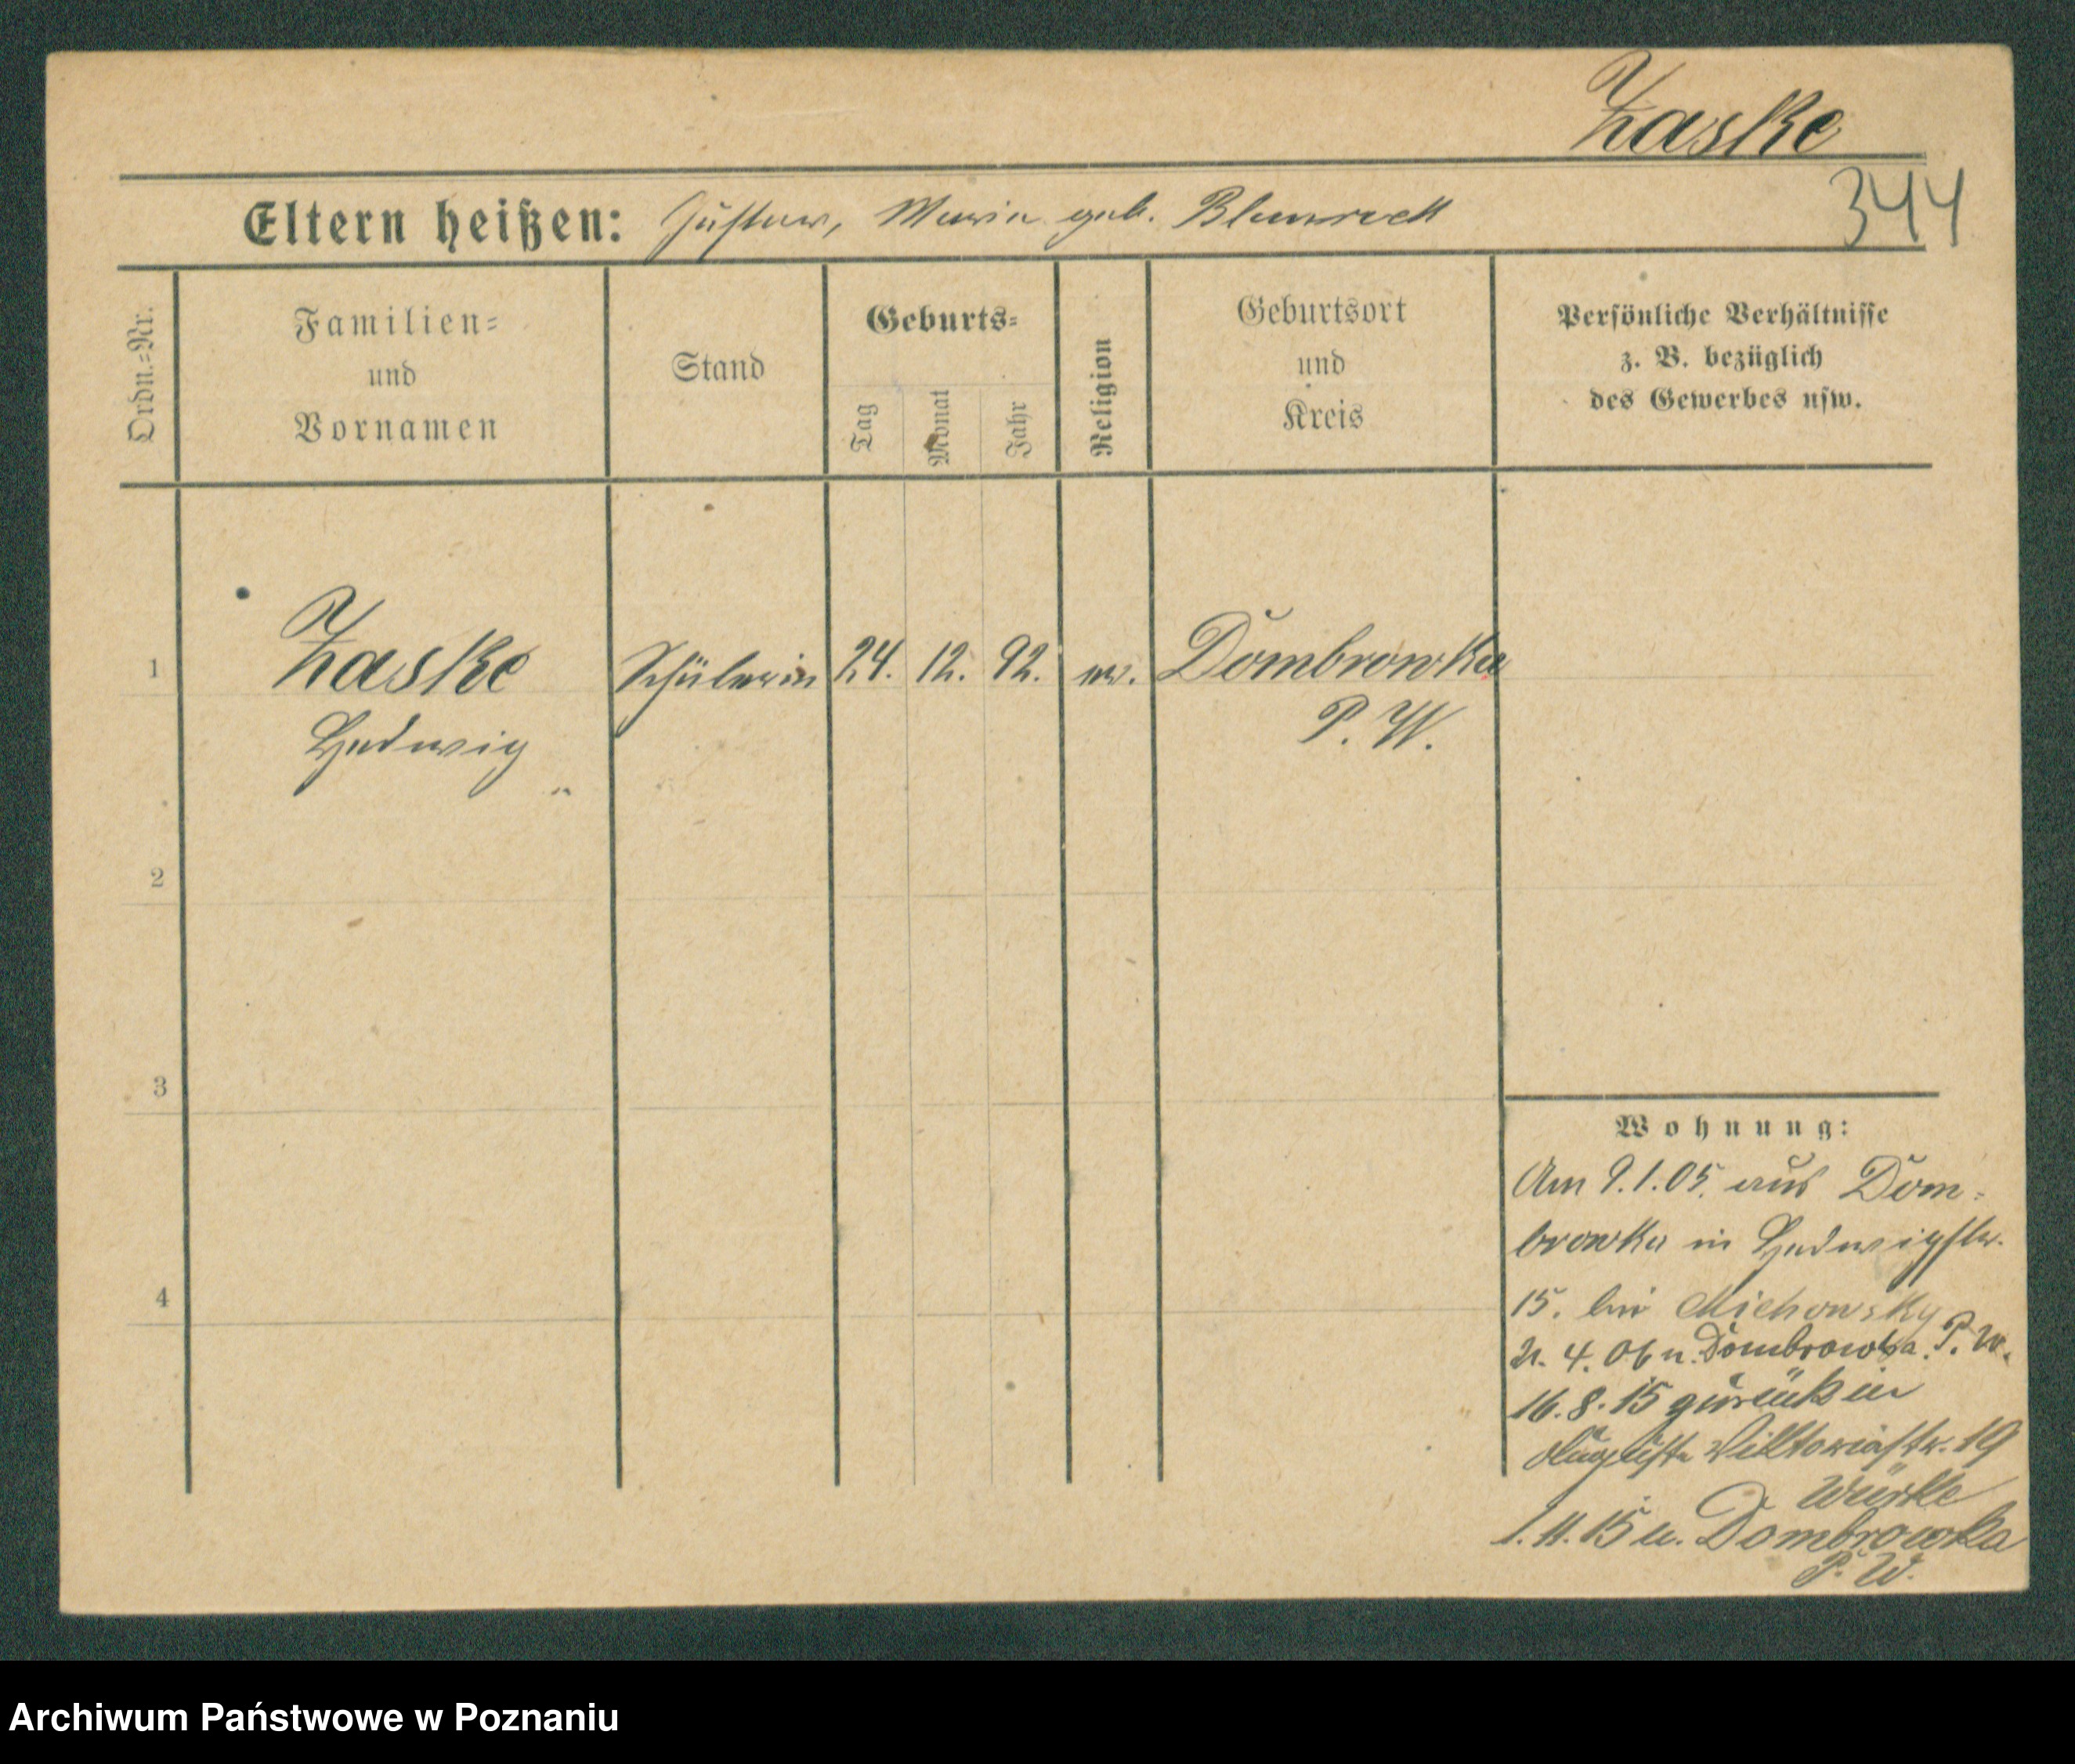 Zaske
344
Eltern heißen: Gustav, Maria geb. Blumreck
Ordn.=Nr.
Familien=
und
Vornamen
Stand
Geburts=
Tag
Monat
Jahr
Religion
Geburtsort
und
Kreis
Persönliche Verhältnisse
z. B. bezüglich
des Gewerbes usw.
1
Zaske
Hedwig
Schülerin
24. 12. 92.
ev.
Dombrowka
P. W.
2
3
4
Wohnung:
Am 9.1.05. aus Dom=
browka in Hedwigstr.
15. bei Michowsky
21. 4. 06 n. Dombrowka P. W.
16. 8. 15 zurück in
Auguste Viktoriastr. 19
1. 11. 15 n. Dombrowka
P. W.
Archiwum Państwowe w Poznaniu